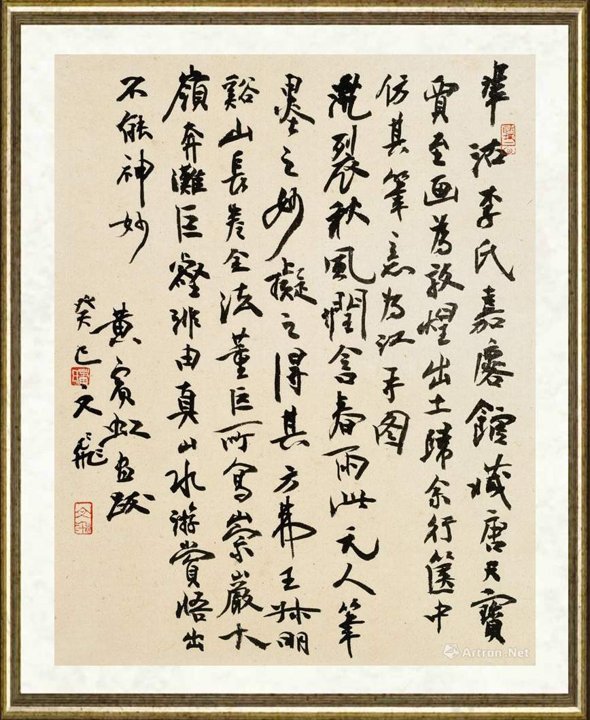 沽李氏嘉麐館藏唐天寶
賈至画為敦煌出土歸余行篋中
仿其筆意為江干图
乾裂秋風潤含春雨此元人筆
墨之妙擬之得其方弗王叔明
谿山長卷全法董巨所寫崇巖大
嶺奔灘巨壑非由真山水游賞悟出
不能神妙
黄賓虹画跋
癸巳 文飛
Artron.Net